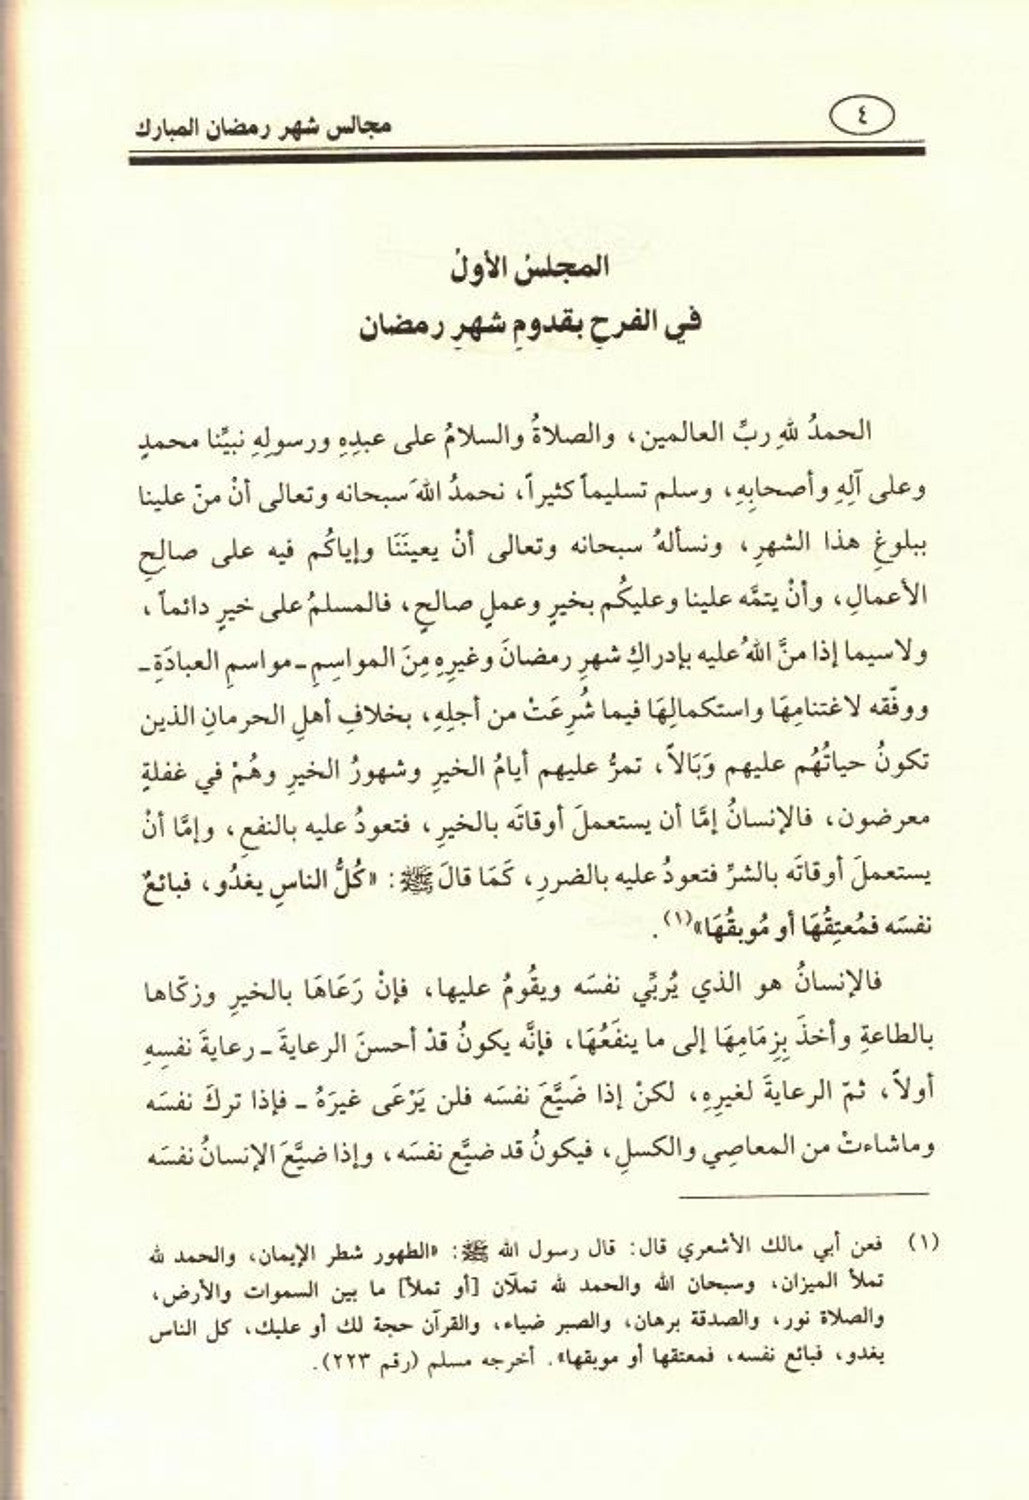 ٤
مجالس شهر رمضان المبارك
المجلسُ الأولُ
في الفرحِ بقدومِ شهرِ رمضان
الحمدُ للهِ ربِّ العالمين، والصلاةُ والسلامُ على عبدِهِ ورسولِهِ نبيِّنا محمدٍ
وعلى آلِهِ وأصحابِهِ، وسلم تسليماً كثيراً، نحمدُ اللهَ سبحانه وتعالى أنْ منّ علينا
ببلوغِ هذا الشهرِ، ونسألهُ سبحانه وتعالى أنْ يعينَنَا وإياكُم فيه على صالحِ
الأعمالِ، وأنْ يتمَّه علينا وعليكُم بخيرٍ وعملٍ صالحٍ، فالمسلمُ على خيرٍ دائماً،
ولاسيما إذا منَّ اللهُ عليه بإدراكِ شهرِ رمضانَ وغيرِهِ مِنَ المواسِمِ ـ مواسمِ العبادَةِ ـ
ووفّقه لاغتنامِهَا واستكمالِهَا فيما شُرِعَتْ من أجلِهِ، بخلافِ أهلِ الحرمانِ الذين
تكونُ حياتُهُم عليهم وَبَالاً، تمرُّ عليهم أيامُ الخيرِ وشهورُ الخيرِ وهُمْ في غفلةٍ
معرضون، فالإنسانُ إمَّا أن يستعملَ أوقاتَه بالخيرِ، فتعودُ عليه بالنفعِ، وإمَّا أنْ
يستعملَ أوقاتَه بالشرِّ فتعودُ عليه بالضررِ، كَمَا قالَ ﷺ: «كُلُّ الناسِ يغدُو، فبائعٌ
نفسَه فمُعتِقُهَا أو مُوبقُهَا»(١).
فالإنسانُ هو الذي يُربِّي نفسَه ويقُومُ عليها، فإنْ رَعَاهَا بالخيرِ وزكّاها
بالطاعةِ وأخذَ بِزِمَامِهَا إلى ما ينفَعُهَا، فإنَّه يكونُ قدْ أحسنَ الرعايةَ ـ رعايةَ نفسِهِ
أولاً، ثمّ الرعايةَ لغيرِهِ، لكنْ إذا ضَيَّعَ نفسَه فلن يَرْعَى غيرَهُ ـ فإذا تركَ نفسَه
وماشاءتْ من المعاصِي والكسلِ، فيكونُ قد ضيَّع نفسَه، وإذا ضيَّعَ الإنسانُ نفسَه
(١) فعن أبي مالك الأشعري قال: قال رسول الله ﷺ: «الطهور شطر الإيمان، والحمد لله
تملأ الميزان، وسبحان الله والحمد لله تملآن [أو تملأ] ما بين السموات والأرض،
والصلاة نور، والصدقة برهان، والصبر ضياء، والقرآن حجة لك أو عليك، كل الناس
يغدو، فبائع نفسه، فمعتقها أو موبقها». أخرجه مسلم (رقم ٢٢٣).